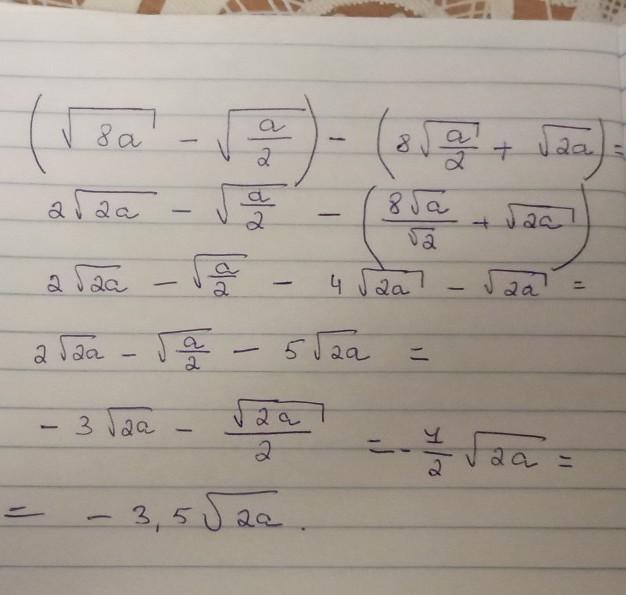 (√8a − √a/2) − (8√a/2 + √2a) =
2√2a − √a/2 − (8√a/√2 + √2a)
2√2a − √a/2 − 4√2a − √2a =
2√2a − √a/2 − 5√2a =
− 3√2a − √2a/2 = − 7/2 √2a =
= − 3,5√2a.